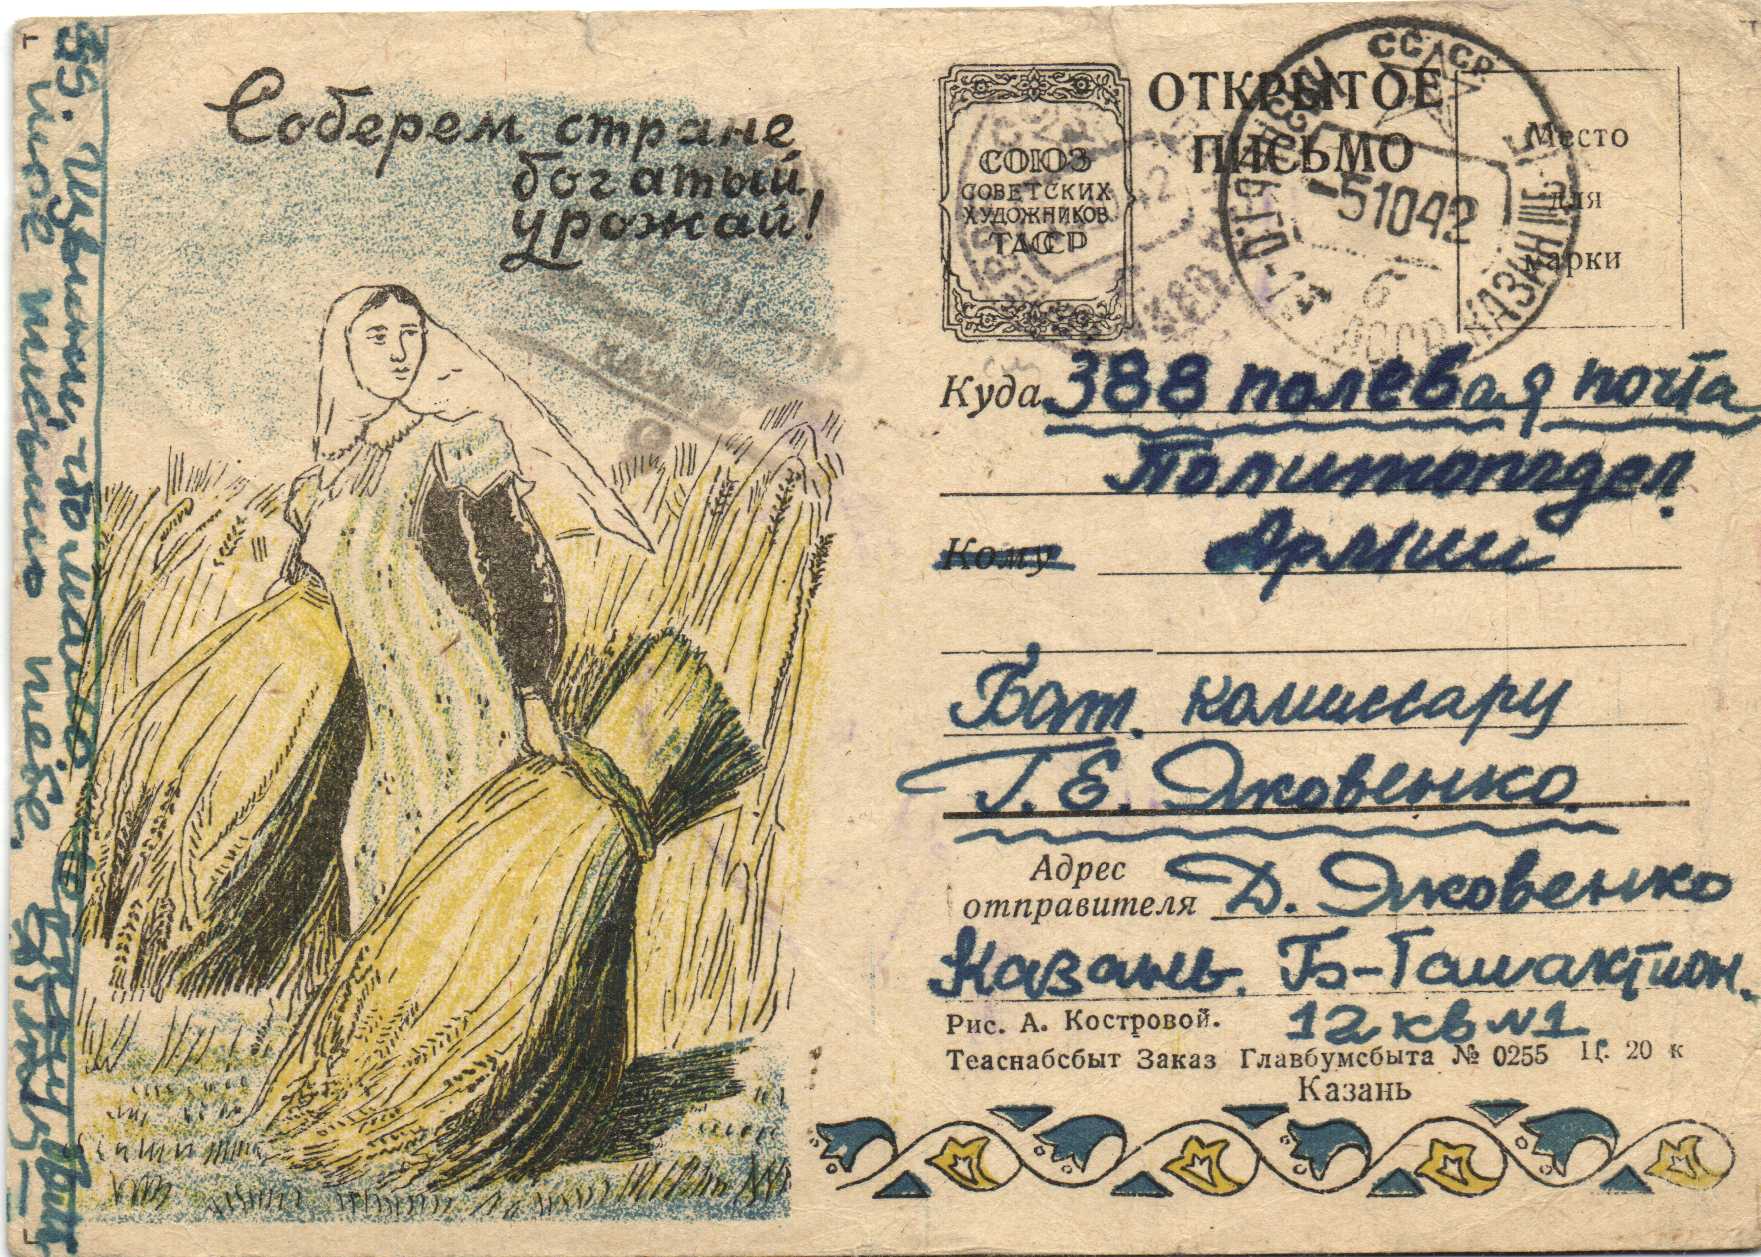 Соберем стране
богатый
урожай!
СОЮЗ
СОВЕТСКИХ
ХУДОЖНИКОВ
ТАССР
ОТКРЫТОЕ
ПИСЬМО
Место
для
марки
СССР
-51042
6
Куда 388 полевая почта
Политотдел
Кому Армии
Бат. комиссару
Г. Е. Яковенко
Адрес
отправителя Д. Яковенко
Казань. Б-Галактион.
12 кв №1
Рис. А. Костровой.
Теаснабсбыт Заказ Главбумсбыта № 0255 Ц. 20 к
Казань
Извини, что мало